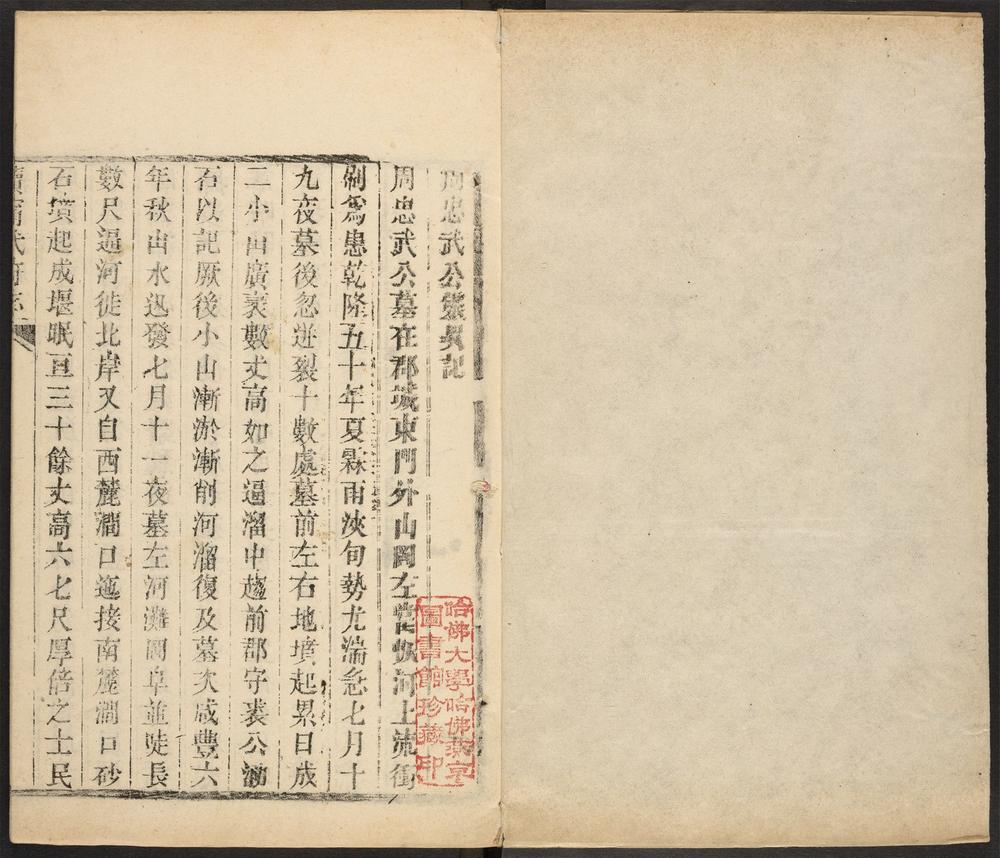 周忠武公靈異記
周忠武公墓在郡城東門外山岡左當恢河上流衝
刷爲患乾隆五十年夏霖雨浹旬勢尤湍急七月十
九夜墓後忽迸裂十數處墓前左右地墳起累日成
二小山廣袤數丈高如之逼溜中趨前郡守裘公泐
石以記厥後小山漸淤漸削河溜復及墓次咸豐六
年秋山水迅發七月十一夜墓左河灘岡阜並陡長
數尺逼河徙北岸又自西麓澗口迤接南麓澗口砂
石墳起成堰眠亘三十餘丈高六七尺厚倍之士民
續寧武府志
哈佛大學哈佛燕京
圖書館珍藏印